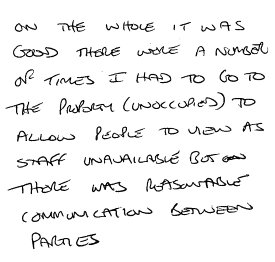 ON THE WHOLE IT WAS
GOOD THERE WERE A NUMBER
OF TIMES I HAD TO GO TO
THE PROPERTY (UNOCCUPIED) TO
ALLOW PEOPLE TO VIEW AS
STAFF UNAVAILABLE BUT
THERE WAS REASONABLE
COMMUNICATION BETWEEN
PARTIES